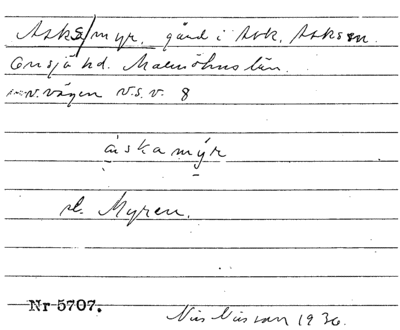 Aska/myr. gård i sbk. Asks sn.
Onsjö hd. Malmöhus län.
v. vägen V.S.V. 8
åskamýr
el. Myren.
Nr 5707.
Nils Nilsson 1930.